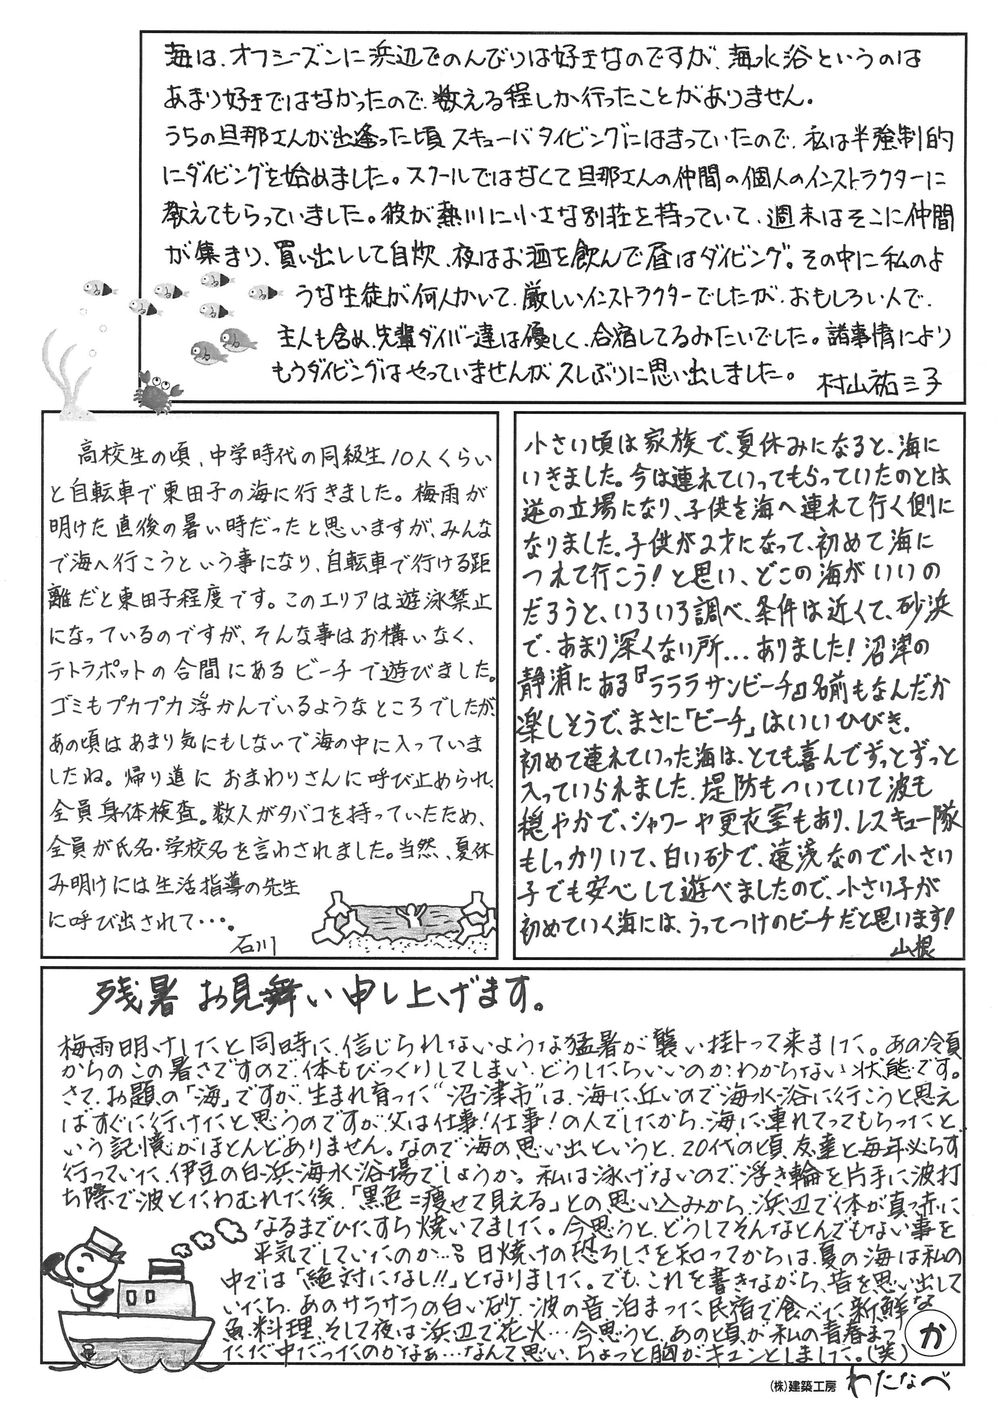 海は、オフシーズンに浜辺でのんびりは好きなのですが、海水浴というのは
あまり好きではなかったので、数える程しか行ったことがありません。
うちの旦那さんが出逢った頃スキューバダイビングにはまっていたので、私は半強制的
にダイビングを始めました。スクールではなくて旦那さんの仲間の個人のインストラクターに
教えてもらっていました。彼が熱川に小さな別荘を持っていて、週末はそこに仲間
が集まり、買い出しして自炊、夜はお酒を飲んで昼はダイビング。その中に私のよ
うな生徒が何人かいて、厳しいインストラクターでしたが、おもしろい人で、
主人も含め、先輩ダイバー達は優しく、合宿してるみたいでした。諸事情により
もうダイビングはやっていませんが久しぶりに思い出しました。 村山祐三子
高校生の頃、中学時代の同級生10人くらい
と自転車で東田子の海に行きました。梅雨が
明けた直後の暑い時だったと思いますが、みんな
で海へ行こうという事になり、自転車で行ける距
離だと東田子程度です。このエリアは遊泳禁止
になっているのですが、そんな事はお構いなく、
テトラポットの合間にあるビーチで遊びました。
ゴミもプカプカ浮かんでいるようなところでしたが、
あの頃はあまり気にもしないで海の中に入っていま
したね。帰り道におまわりさんに呼び止められ、
全員身体検査。数人がタバコを持っていたため、
全員が氏名・学校名を言わされました。当然、夏休
み明けには生活指導の先生
に呼び出されて・・・。
石川
小さい頃は家族で、夏休みになると、海に
いきました。今は連れていってもらっていたのとは
逆の立場になり、子供を海へ連れて行く側に
なりました。子供が2才になって、初めて海に
つれて行こう!と思い、どこの海がいいの
だろうと、いろいろ調べ、条件は近くて、砂浜
で、あまり深くない所…ありました!沼津の
静浦にある『ラララサンビーチ』名前もなんだか
楽しそうで、まさに「ビーチ」はいいひびき。
初めて連れていった海は、とても喜んでずっとずっと
入っていられました。堤防もついていて波も
穏やかで、シャワーや更衣室もあり、レスキュー隊
もしっかりいて、白い砂で、遠浅なので小さい
子でも安心して遊べましたので、小さい子が
初めていく海には、うってつけのビーチだと思います!
山根
残暑お見舞い申し上げます。
梅雨明けしたと同時に、信じられないような猛暑が襲い掛かって来ました。あの冷夏
からのこの暑さですので、体もびっくりしてしまい、どうしたらいいのかわからない状態です。
さて、お題の「海」ですが、生まれ育った“沼津市”は、海に近いので海水浴に行こうと思え
ばすぐに行けたと思うのですが、父は仕事!仕事!の人でしたから、海に連れてってもらったと
いう記憶がほとんどありません。なので海の思い出というと、20代の頃、友達と毎年必らず
行っていた、伊豆の白浜海水浴場でしょうか。私は泳げないので、浮き輪を片手に波打
ち際で波とたわむれた後、「黒色=痩せて見える」との思い込みから、浜辺で体が真っ赤に
なるまでひたすら焼いてました。今思うと、どうしてそんなとんでもない事を
平気でしていたのか…。日焼けの恐ろしさを知ってからは、夏の海は私の
中では「絶対になし!!」となりました。でも、これを書きながら、昔を思い出して
いたら、あのサラサラの白い砂、波の音、泊まった民宿で食べた新鮮な
魚料理、そして夜は浜辺で花火…今思うと、あの頃が私の青春まっ
ただ中だったのかなぁ…なんて思い、ちょっと胸がキュンとしました。(笑)
か
(株)建築工房 わたなべ